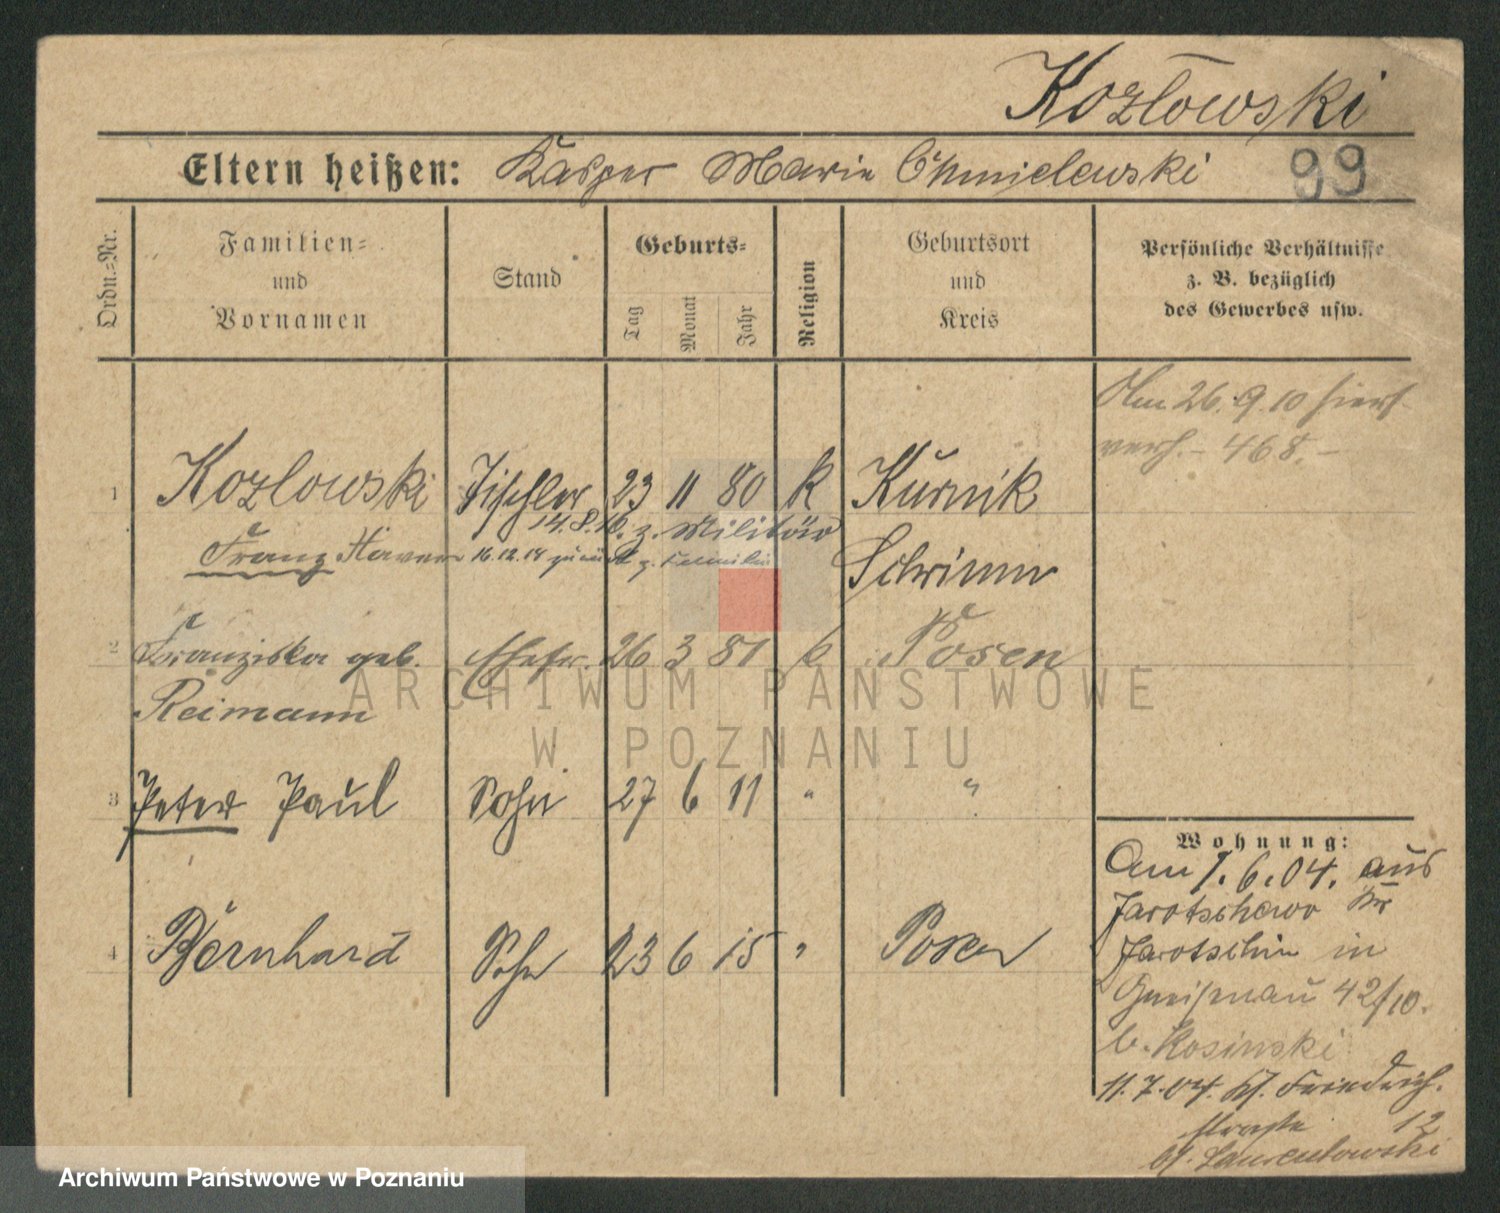 Kozłowski
Eltern heißen: Kasper Marie Chmielewski 99
Ordn.=Nr.
Familien=
und
Vornamen
Stand
Geburts=
Tag
Monat
Jahr
Religion
Geburtsort
und
Kreis
Persönliche Verhältnisse
z. B. bezüglich
des Gewerbes usw.
Am 26. 9. 10 hiers.
verh. - 468. -
1 Kozlowski Tischler 23 11 80 K Kurnik
14. 8. 16. z. Militär
Franz Xaver 16.12.18 zurück z. Familie Schrimm
2 Franziska geb. Ehefr. 26 3 81 k Posen
Reimann
ARCHIWUM PAŃSTWOWE
W POZNANIU
3 Peter Paul Sohn 27 6 11 " "
4 Bernhard Sohn 23 6 15 " Posen
Wohnung:
Am 1. 6. 04. aus
Jarotschewo Kr
Jarotschin in
Gneisenau 42/10.
b. Kosinski
11. 7. 04. Friedrich.
straße 12
bf. Laurentowski
Archiwum Państwowe w Poznaniu